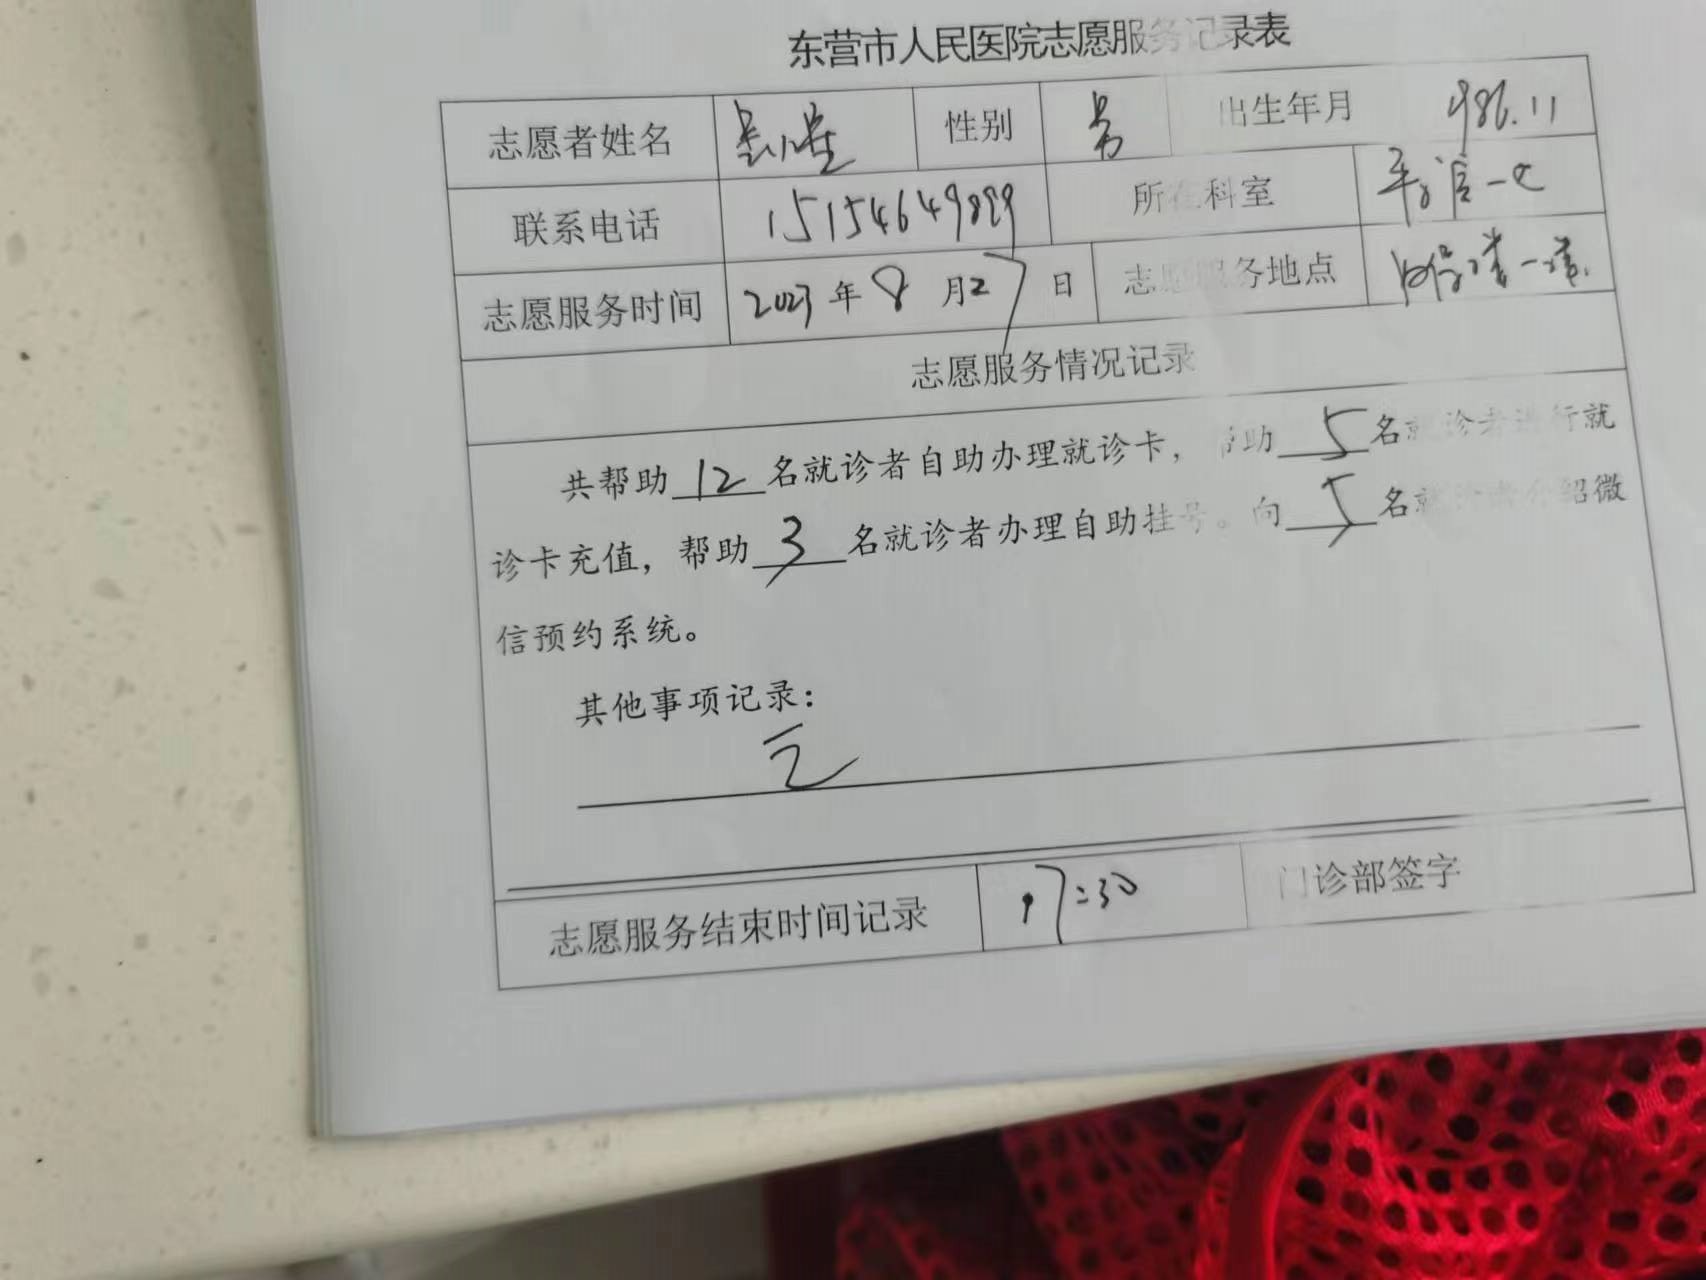 东营市人民医院志愿服务记录表
志愿者姓名 性别 男 出生年月 1986.11
联系电话 15154649899 所在科室
志愿服务时间 2023年8月27日 志愿服务地点
志愿服务情况记录
共帮助12名就诊者自助办理就诊卡，帮助5名就诊者进行就
诊卡充值，帮助3名就诊者办理自助挂号。向5名就诊者介绍微
信预约系统。
其他事项记录：
无
志愿服务结束时间记录 17:30 门诊部签字